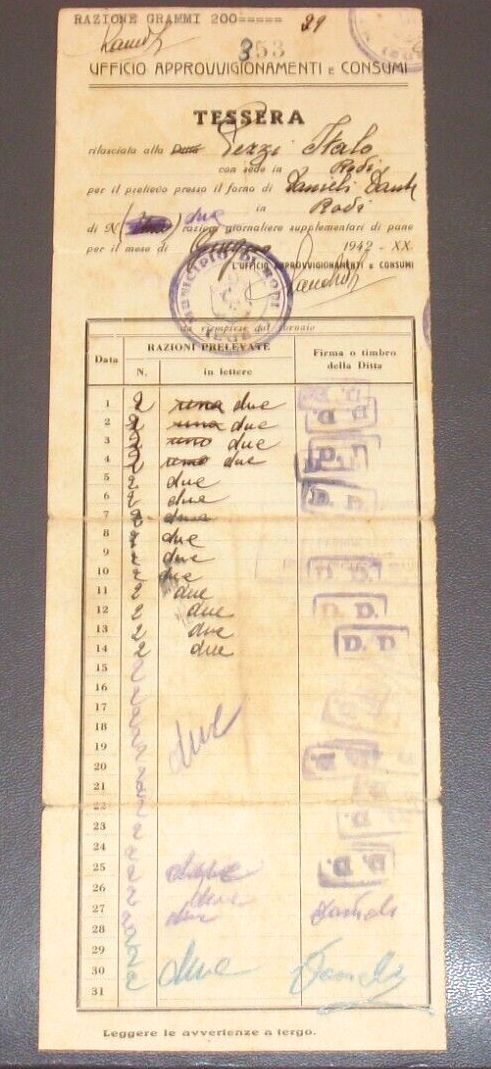 RAZIONE GRAMMI 200===== 29
353
UFFICIO APPROVVIGIONAMENTI E CONSUMI
TESSERA
rilasciata alla Ditta Italo
con sede in Rodi
per il prelievo presso il forno di Danieli Dante
in Rodi
di N. ( ) due razioni giornaliere supplementari di pane
per il mese di 1942 - XX.
L'UFFICIO APPROVVIGIONAMENTI E CONSUMI
MUNICIPIO DI RODI
EGEO
da riempirsi dal fornaio
Data RAZIONI PRELEVATE Firma o timbro della Ditta
N. in lettere
1 2 una due
2 2 una due D. D.
3 2 uno due
4 2 uno due D. D.
5 2 due
6 2 due D. D.
7 2 due
8 2 due
9 2 due
10 2 due D. D.
11 2 due
12 2 due D. D.
13 2 due
14 2 due D. D
15 2
16 2
17 2
18 2 due
19 2
20 2
21 2
22 2
23 2
24 2
25 2 due D. D.
26 2 due
27 2 due Danieli
28 2
29 2
30 2 due Danieli
31 2
Leggere le avvertenze a tergo.